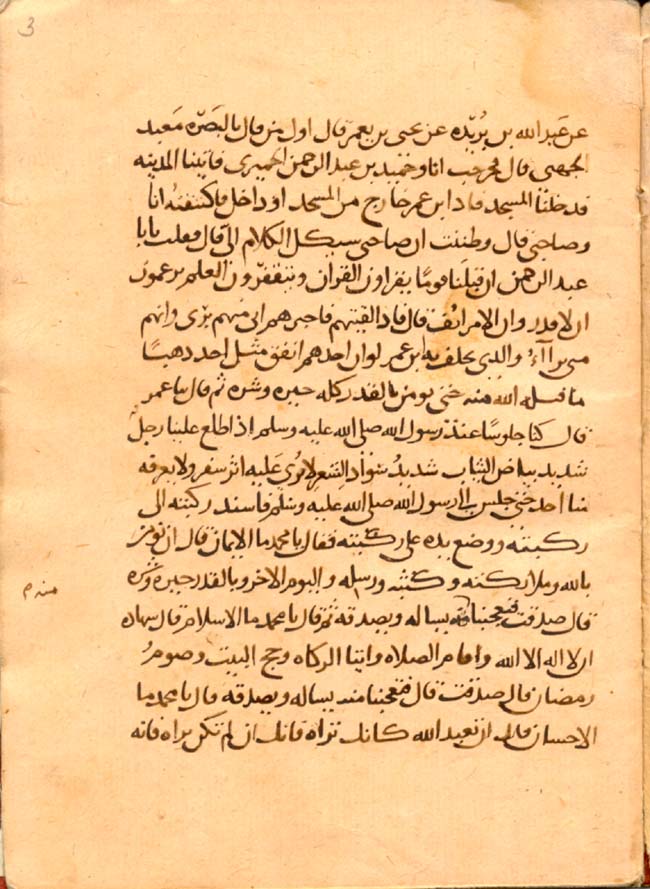 3
عن عبد الله بن بريده عن يحيى بن يعمر قال اول من قال بالبصره معبد
الجهنى قال فخرجت انا وحميد بن عبد الرحمن الحميرى فاتينا المدينه
فدخلنا المسجد فاذا ابن عمر خارج من المسجد او داخل فاكتنفته انا
وصاحبى قال وظننت ان صاحبى سيكل الكلام الى قال فقلت يابا
عبد الرحمن ان قبلنا قوما يقراون القران ويتقفرون العلم يزعمون
ان لا قدر وان الامر انف قال فاذا لقيتهم فاخبرهم انى منهم برى وانهم
منى براآء والذى يحلف به ابن عمر لو ان احدهم انفق مثل احد ذهبا
ما قبله الله منه حتى يومن بالقدر كله خيره وشره ثم قال ثنا عمر
قال كنا جلوسا عند رسول الله صلى الله عليه وسلم اذ اطلع علينا رجل
شديد بياض الثياب شديد سواد الشعر لا يرى عليه اثر سفر ولا يعرفه
منا احد حتى جلس الى رسول الله صلى الله عليه وسلم فاسند ركبته الى
ركبته ووضع يده على ركبته فقال يا محمد ما الايمان قال ان تومن
بالله وملايكته وكتبه ورسله واليوم الاخر وبالقدر خيره وشره
قال صدقت فتعجبنا يساله ويصدقه ثم قال يا محمد ما الاسلام قال شهاده
منه م
ان لا اله الا الله واقام الصلاه وايتا الزكاه وحج البيت وصوم
رمضان قال صدقت قال فتعجبنا منه يساله ويصدقه قال يا محمد ما
الاحسان قال ان تعبد الله كانك تراه فانك ان لم تكن تراه فانه